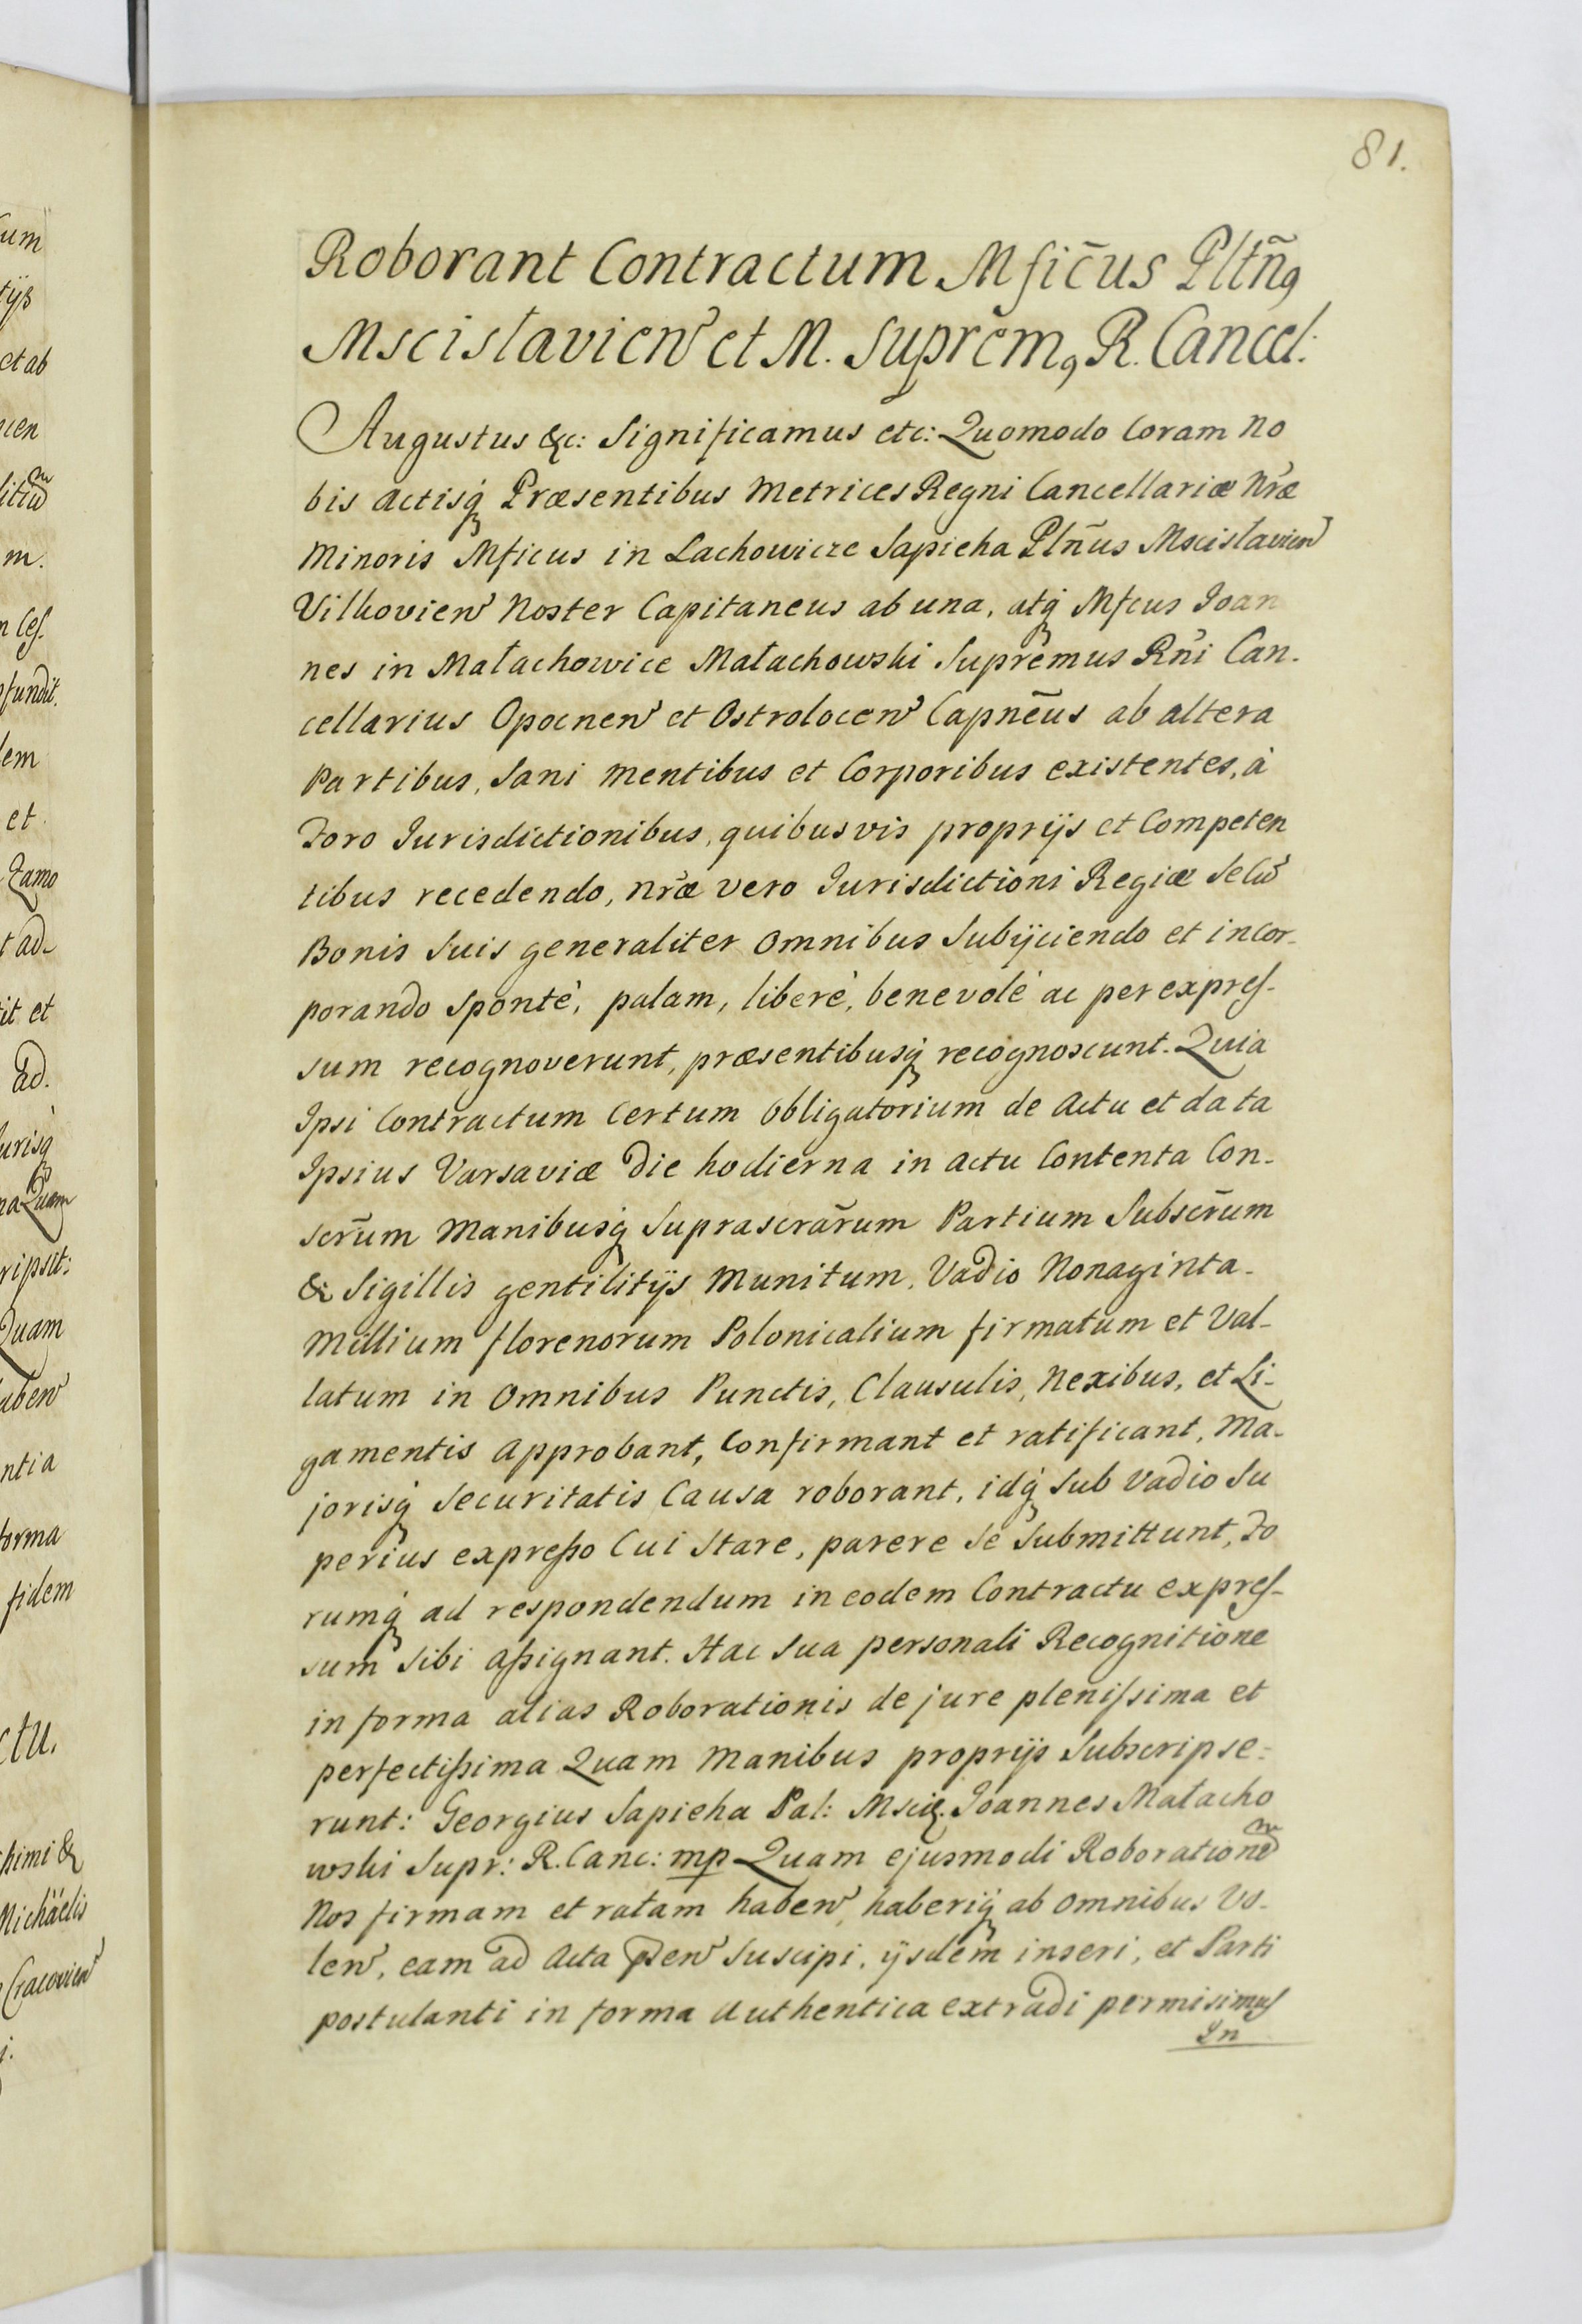 81.
Roborant Contractum Mfic̃us Pltñ9
Mscislavien̄ et M. Suprem9 R. Cancel:
Augustus &c: Significamus etc: Quomodo Coram No
bis Actisq́ Præsentibus Metrices Regni Cancellariæ Nr̃æ
Minoris Mficus in Lachowicze Sapieha Plñus Mscislavien̄
Vilkovien̄ Noster Capitaneus ab una, atq́ Mfcus Joan
nes in Małachowice Małachowski Supremus Rñi Can-
cellarius Opocnen̄ et Ostrolocen̄ Capnēus ab altera
Partibus, Sani Mentibus et Corporibus existentes, à
Foro Jurisdictionibus, quibusvis proprijs et Competen
tibus recedendo, nr̃æ vero Jurisdictioni Regiæ Secū
Bonis Suis generaliter Omnibus Subijciendo et incor-
porando Sponté, palam, liberé, benevolé ac per expres-
sum recognoverunt, præsentibusq́ recognoscunt. Quia
Ipsi Contractum Certum Obligatorium de Actu et data
Ipsius Varsaviæ Die hodierna in actu Contenta Con-
scr̃um Manibusq́ Suprascrãrum Partium Subscr̃um
& Sigillis gentilitijs Munitum, Vadio Nonaginta-
Millium florenorum Polonicalium firmatum et Val-
latum in Omnibus Punctis, Clausulis, Nexibus, et Li-
gamentis Approbant, Confirmant et ratificant, Ma-
jorisq́ Securitatis Causa roborant, idq́ Sub Vadio Su
perius expresso Cui Stare, parere Se Submittunt, Fo
rumq́ ad respondendum in eodem Contractu expres-
sum Sibi assignant. Hac Sua personali Recognitione
in forma alias Roborationis de jure plenissima et
perfectissima Quam Manibus proprijs Subscripse-
runt: Georgius Sapieha Pal: Mscię. Joannes Małacho
wski Supr: R. Canc: mp Quam ejusmodi Roborationē
Nos firmam et ratam haben̄, haberiq́ ab Omnibus Vo-
len̄, eam ad Acta psen̄ Suscipi, ijsdem inseri, et Parti
postulanti in forma Authentica extradi permisimus
In